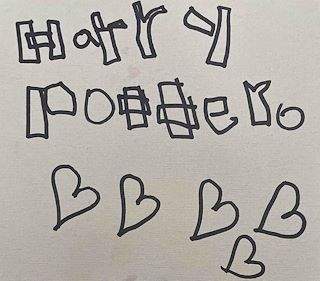 Harry
Pottero